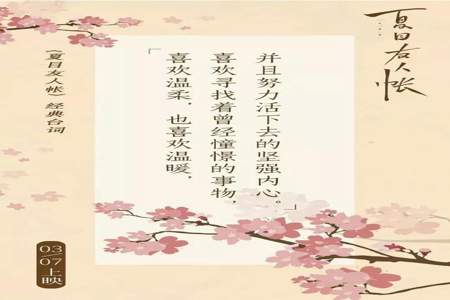 夏目友人帐
「喜欢温柔，也喜欢温暖，
喜欢寻找着曾经憧憬的事物，
并且努力活下去的坚强内心。」
《夏目友人帐》经典台词
03
07
上映